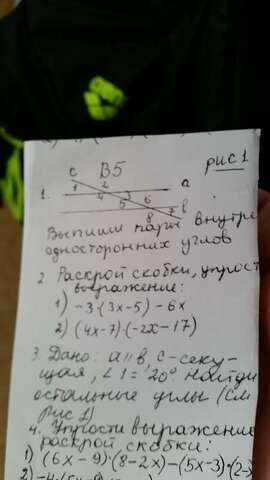 В5
рис 1
с
1 2 а
1. 4 3 6
5 7 в
8
Выпиши пары внутре
односторонних углов
2. Раскрой скобки, упрост
выражение:
1) -3·(3x-5) - 6x
2) (4x-7)·(-2x-17)
3. Дано: a||в, с-секу-
щая, ∠1=120°. Найди
остальные углы (См
Рис 1)
4. Упрости выражение
раскрой скобки:
1) (6x-9)·(8-2x)-(5x-3)·(2-